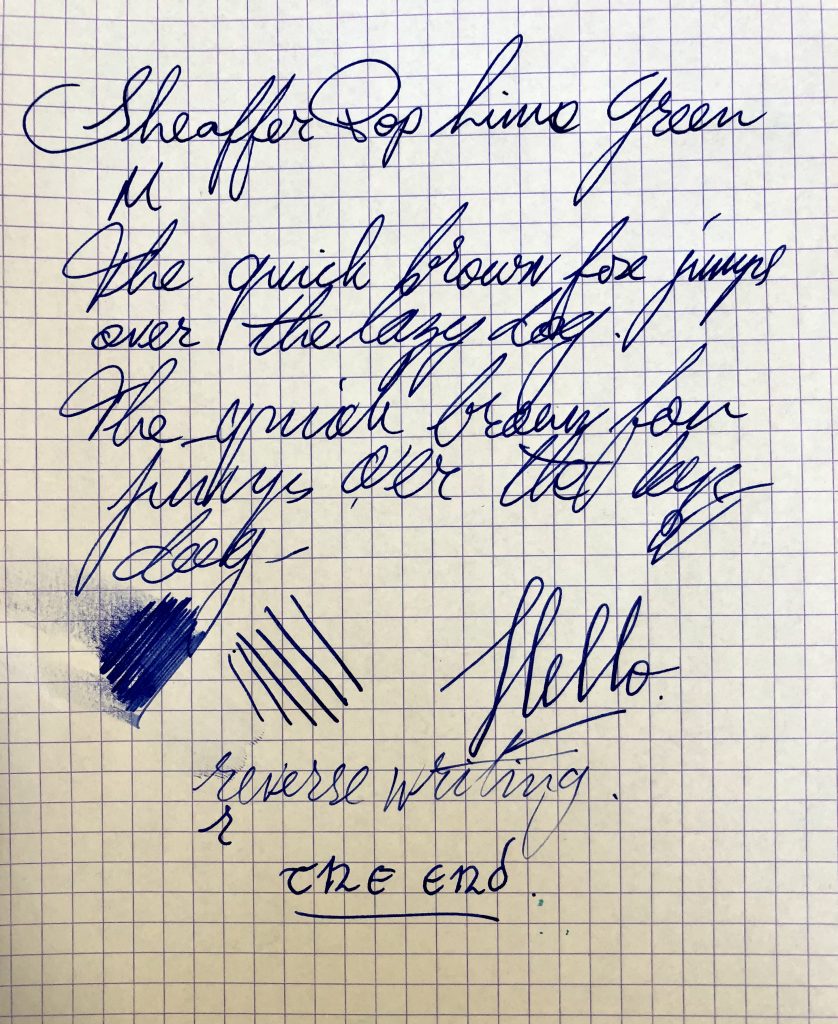 Sheaffer Pop Lime Green
M
The quick brown fox jumps
over the lazy dog.
The quick brown fox
jumps over the lazy
dog
Hello.
reverse writing.
r
THE END.